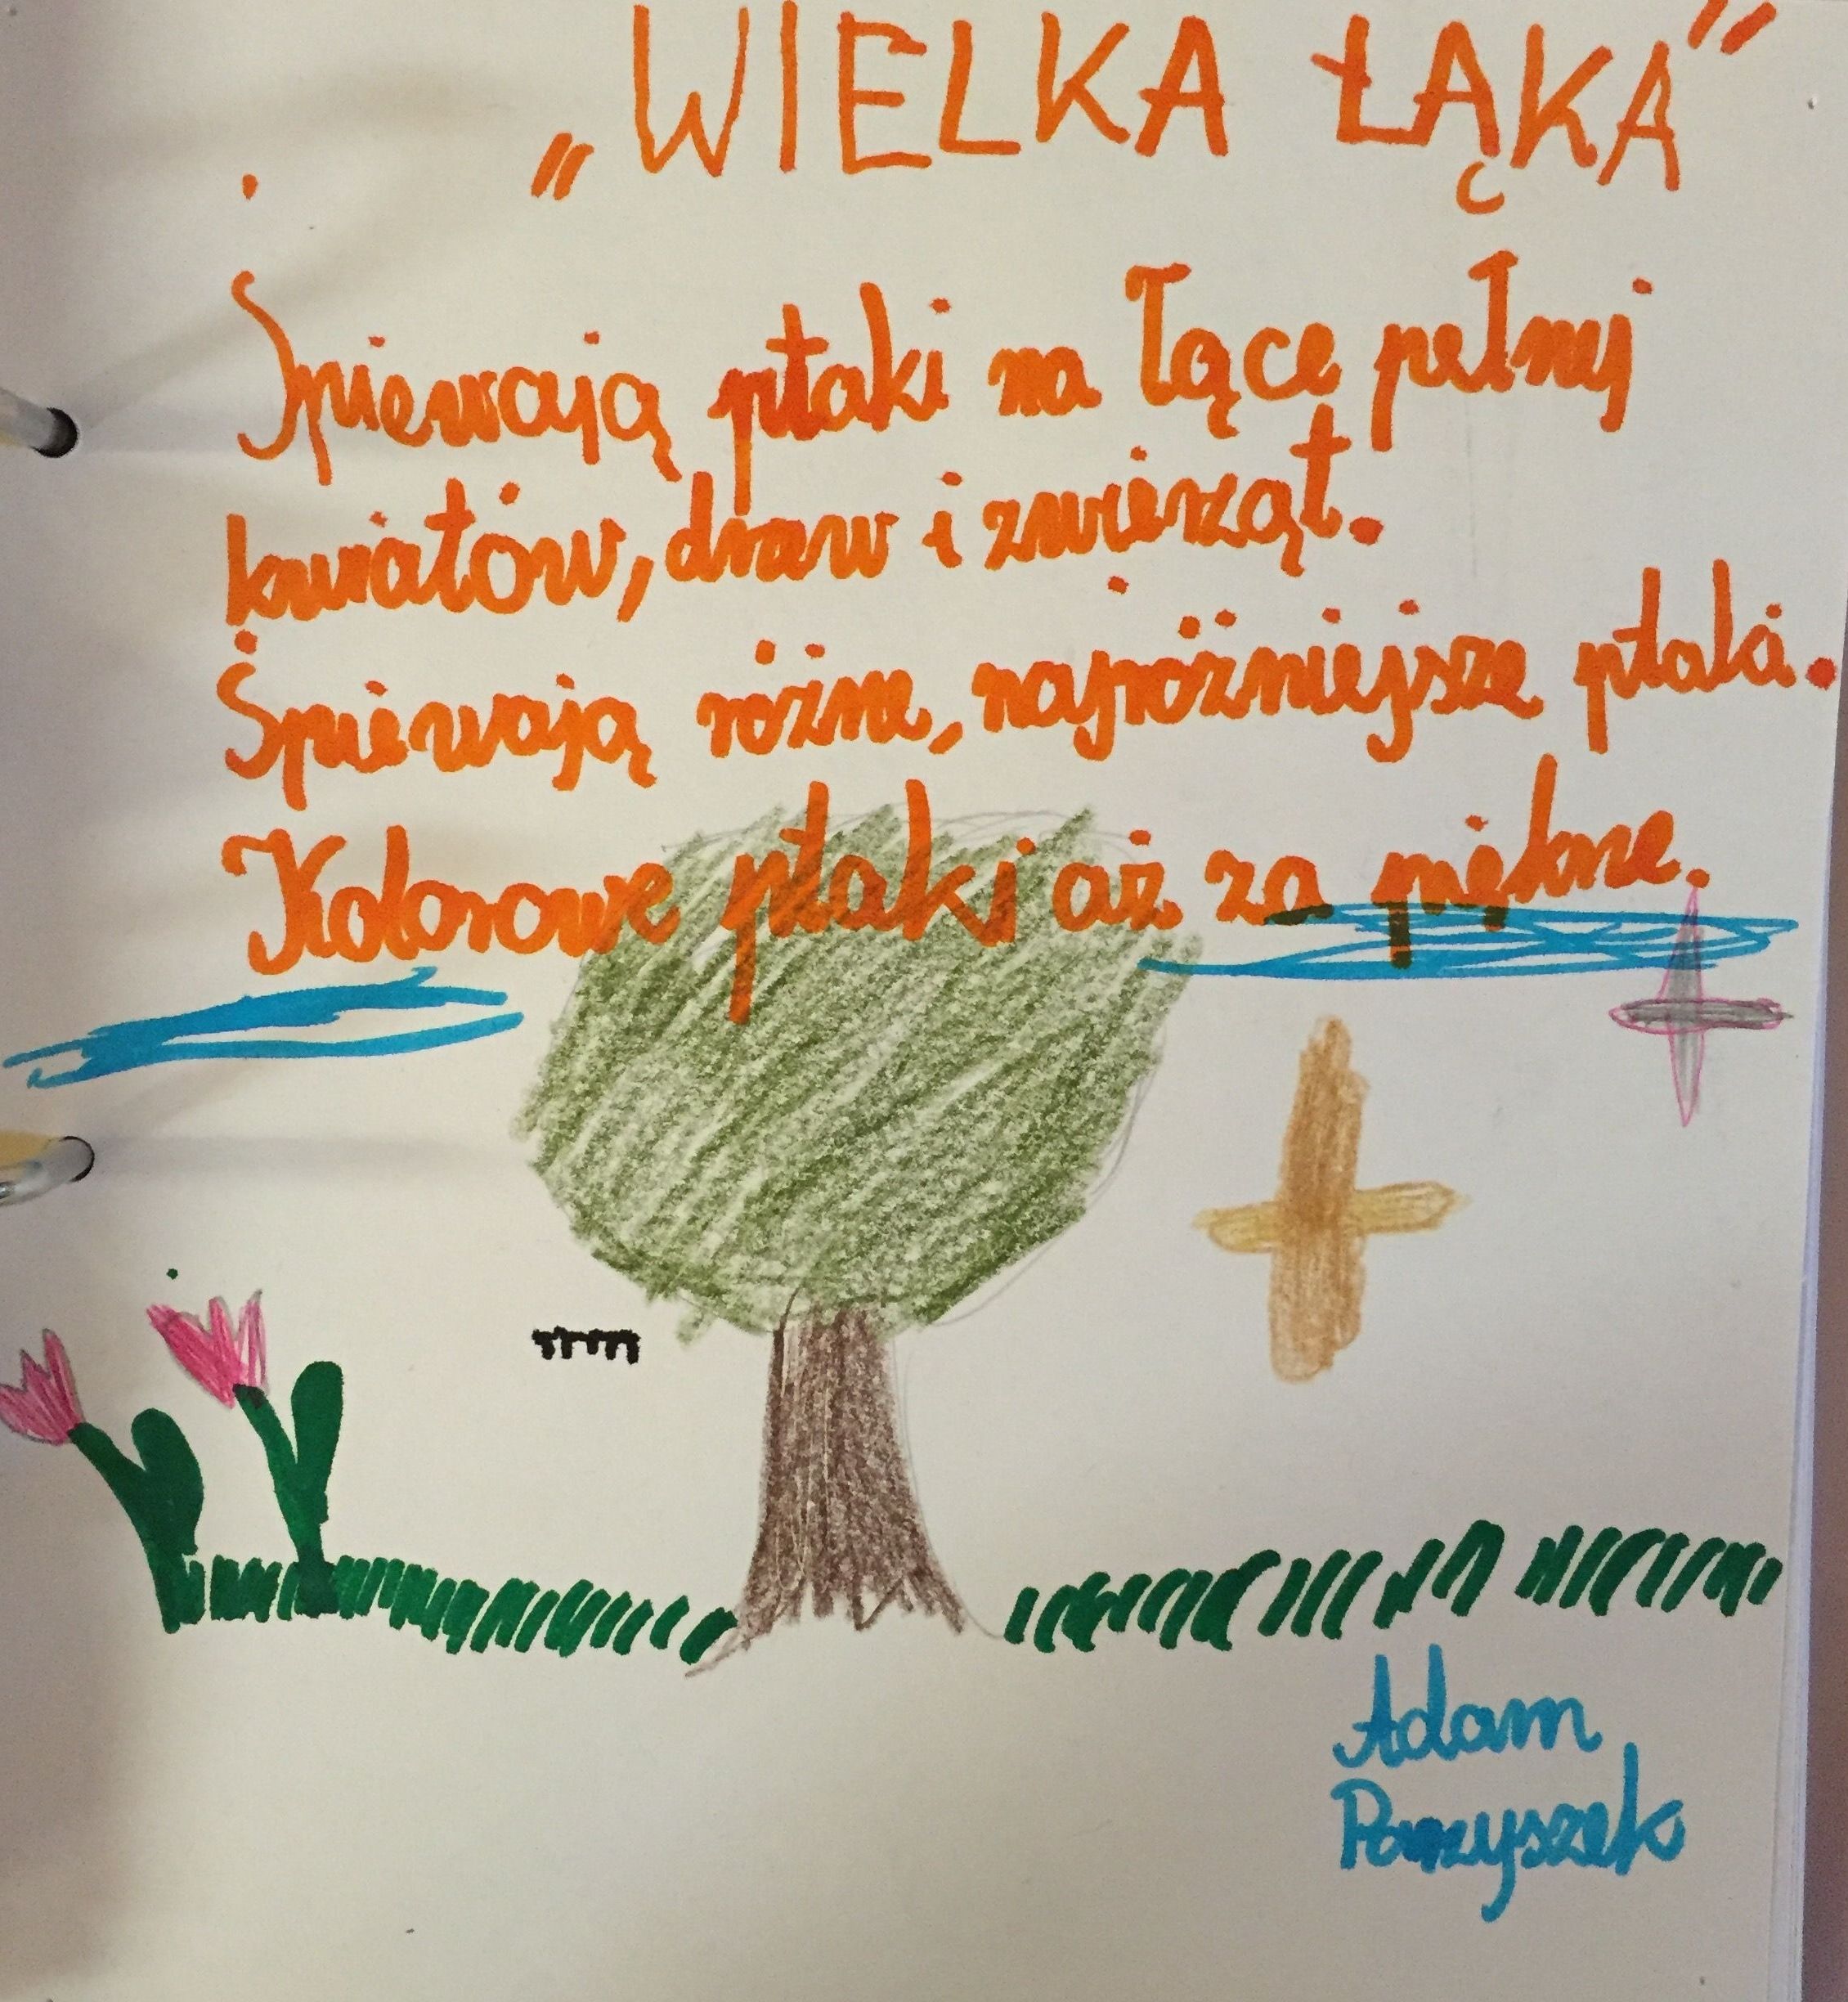 „WIELKA ŁĄKA”
Śpiewają ptaki na łące pełnej
kwiatów, drzew i zwierząt.
Śpiewają różne, najróżniejsze ptaki.
Kolorowe ptaki aż za piękne.
Adam